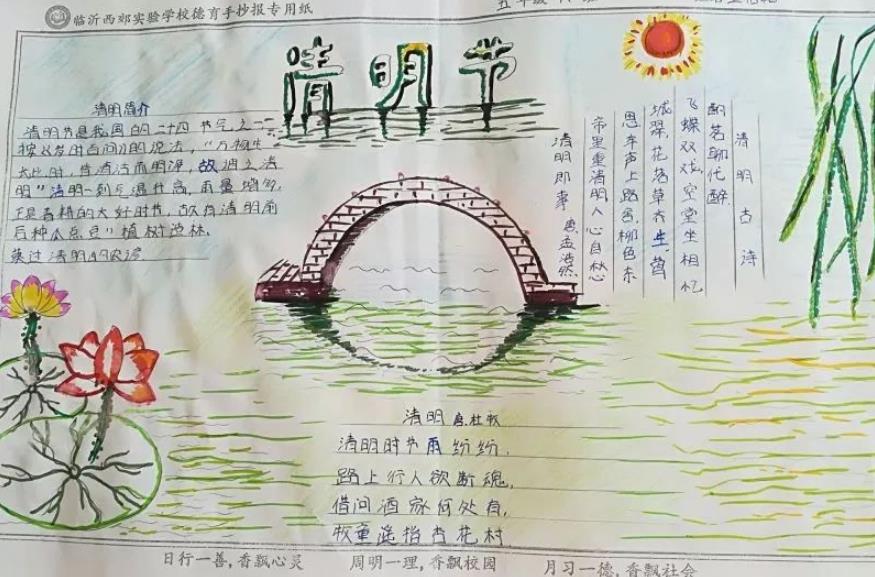 临沂西郊实验学校德育手抄报专用纸
清明节
清明简介
清明节是我国的二十四节气之一
按《岁时百问》的说法，“万物生
长此时，皆清洁而明净，故谓之清
明”清明一到气温升高，雨量增多，
正是春耕的大好时节，故有“清明前
后种瓜点豆”植树造林，
莫过清明的农谚
清明古诗
酌茗聊代醉
飞蝶双双戏，空堂坐相忆
城翠，花落草齐生，莺
恩车声上路合，柳色东
帝里重清明人心自愁
清明即事 唐孟浩然
清明 唐杜牧
清明时节雨纷纷，
路上行人欲断魂，
借问酒家何处有，
牧童遥指杏花村
日行一善，香飘心灵 周明一理，香飘校园 月习一德，香飘社会